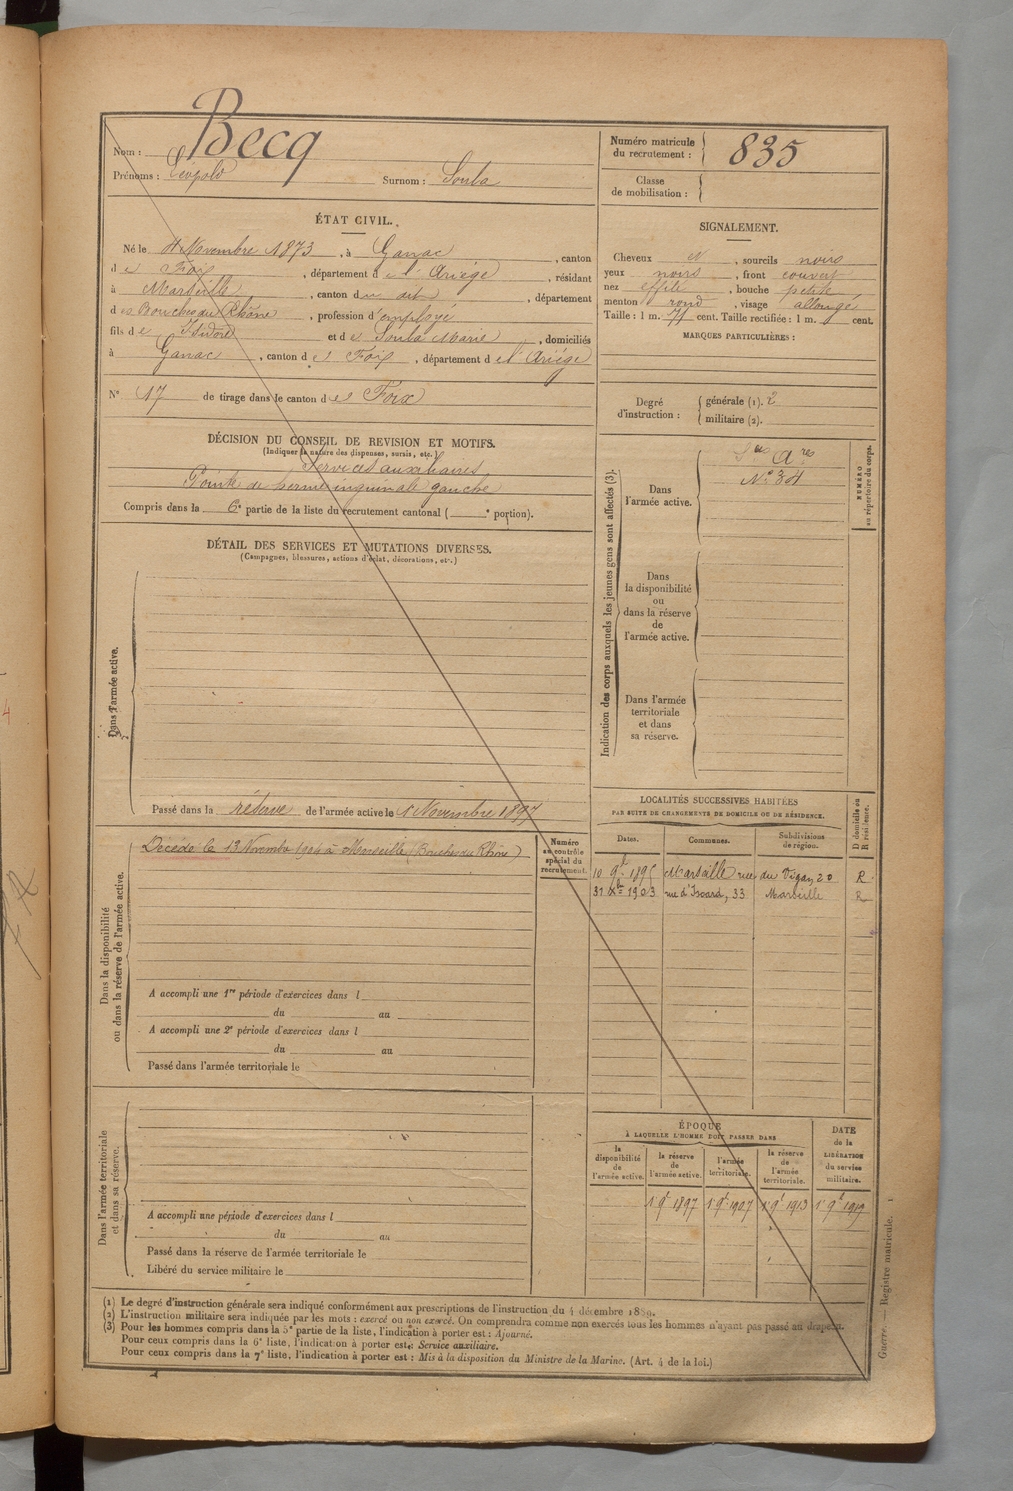 Nom : Becq
Prénoms : Léopold Surnom : Soula
Numéro matricule du recrutement : 835
Classe de mobilisation :
ÉTAT CIVIL.
Né le 4 Novembre 1873, à Ganac, canton
de Foix, département de l'Ariége, résidant
à Marseille, canton du dit, département
des Bouches du Rhône, profession d'employé
fils de Isidore et de Soula Marie, domiciliés
à Ganac, canton de Foix, département de l'Ariége
N° 17 de tirage dans le canton de Foix
SIGNALEMENT.
Cheveux N, sourcils noirs
yeux noirs, front couvert
nez effilé, bouche petite
menton rond, visage allongé
Taille : 1 m. 71 cent. Taille rectifiée : 1 m. cent.
MARQUES PARTICULIÈRES :
Degré d'instruction : générale (1). 2
militaire (2).
DÉCISION DU CONSEIL DE REVISION ET MOTIFS.
(Indiquer la nature des dispenses, sursis, etc.)
Services auxiliaires
Pointe de hernie inguinale gauche
Compris dans la 6e partie de la liste du recrutement cantonal ( e portion).
DÉTAIL DES SERVICES ET MUTATIONS DIVERSES.
(Campagnes, blessures, actions d'éclat, décorations, etc.)
Dans l'armée active.
Passé dans la réserve de l'armée active le 1 Novembre 1897
Indication des corps auxquels les jeunes gens sont affectés (3).
Dans l'armée active.
Sces Ares
N° 34
NUMÉRO au répertoire du corps.
Dans la disponibilité ou dans la réserve de l'armée active.
Dans l'armée territoriale et dans sa réserve.
Dans la disponibilité ou dans la réserve de l'armée active.
Décédé le 13 Novembre 1904 à Marseille (Bouches du Rhône)
Numéro au contrôle spécial du recrutement.
A accompli une 1re période d'exercices dans l
du au
A accompli une 2e période d'exercices dans l
du au
Passé dans l'armée territoriale le
LOCALITÉS SUCCESSIVES HABITÉES
PAR SUITE DE CHANGEMENTS DE DOMICILE OU DE RÉSIDENCE.
Dates. Communes. Subdivisions de région. D domicile ou R résidence.
10 9bre 1895 Marseille rue du Vigan 20 R
31 Xbre 1903 rue d'Isoard, 33 Marseille R
Dans l'armée territoriale et dans sa réserve.
A accompli une période d'exercices dans l
du au
Passé dans la réserve de l'armée territoriale le
Libéré du service militaire le
ÉPOQUE
À LAQUELLE L'HOMME DOIT PASSER DANS
la disponibilité de l'armée active. la réserve de l'armée active. l'armée territoriale. la réserve de l'armée territoriale. DATE de la LIBÉRATION du service militaire.
1 9bre 1897 1 9bre 1907 1 9bre 1913 1 9bre 1919
(1) Le degré d'instruction générale sera indiqué conformément aux prescriptions de l'instruction du 4 décembre 1889.
(2) L'instruction militaire sera indiquée par les mots : exercé ou non exercé. On comprendra comme non exercés tous les hommes n'ayant pas passé au drapeau.
(3) Pour les hommes compris dans la 5e partie de la liste, l'indication à porter est : Ajourné.
Pour ceux compris dans la 6e liste, l'indication à porter est : Service auxiliaire.
Pour ceux compris dans la 7e liste, l'indication à porter est : Mis à la disposition du Ministre de la Marine. (Art. 4 de la loi.)
Guerre. — Registre matricule.